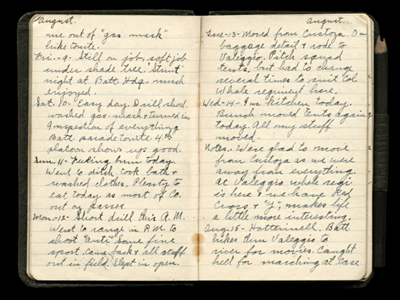 August.
me out of "gas mask"
luke route.
Fri.-9- Still on job, soft job
under shade tree. "Stunt"
night at Batt. Hdq. much
enjoyed.
Sat. 10- Easy day. Drill, shod,
washed gas-mask & turned in
Inspection of everything
Batt. parade route. 4th
platoon shows up good.
Sun. 11- Feeling bum today
Went to ditch took bath &
washed clothes. Plenty to
eat today as most of Co.
out on passes.
Mon.-12- Short drill this A.M.
Went to range in P.M. to
shoot "anti" Some fine
sport. Came back & all stuff
out in field. Slept in open.
August.
Tues-13- Moved from Custoza. On
baggage detail & rode to
Valeggio. Pitch squad
tents, but had to change
several times to suit Col.
Whole regiment here.
Wed-14- In kitchen today.
Bunch moved tents again
today. All my stuff
moved.
Notes- Were glad to move
from Custoza as we were
away from everything.
at Valeggio whole regi.
is here & we have Red
Cross & "Y"; makes life
a little more interesting.
Aug. 15- Batt.
hikes from Valeggio to
river for movies. Caught
hell for marching at ease